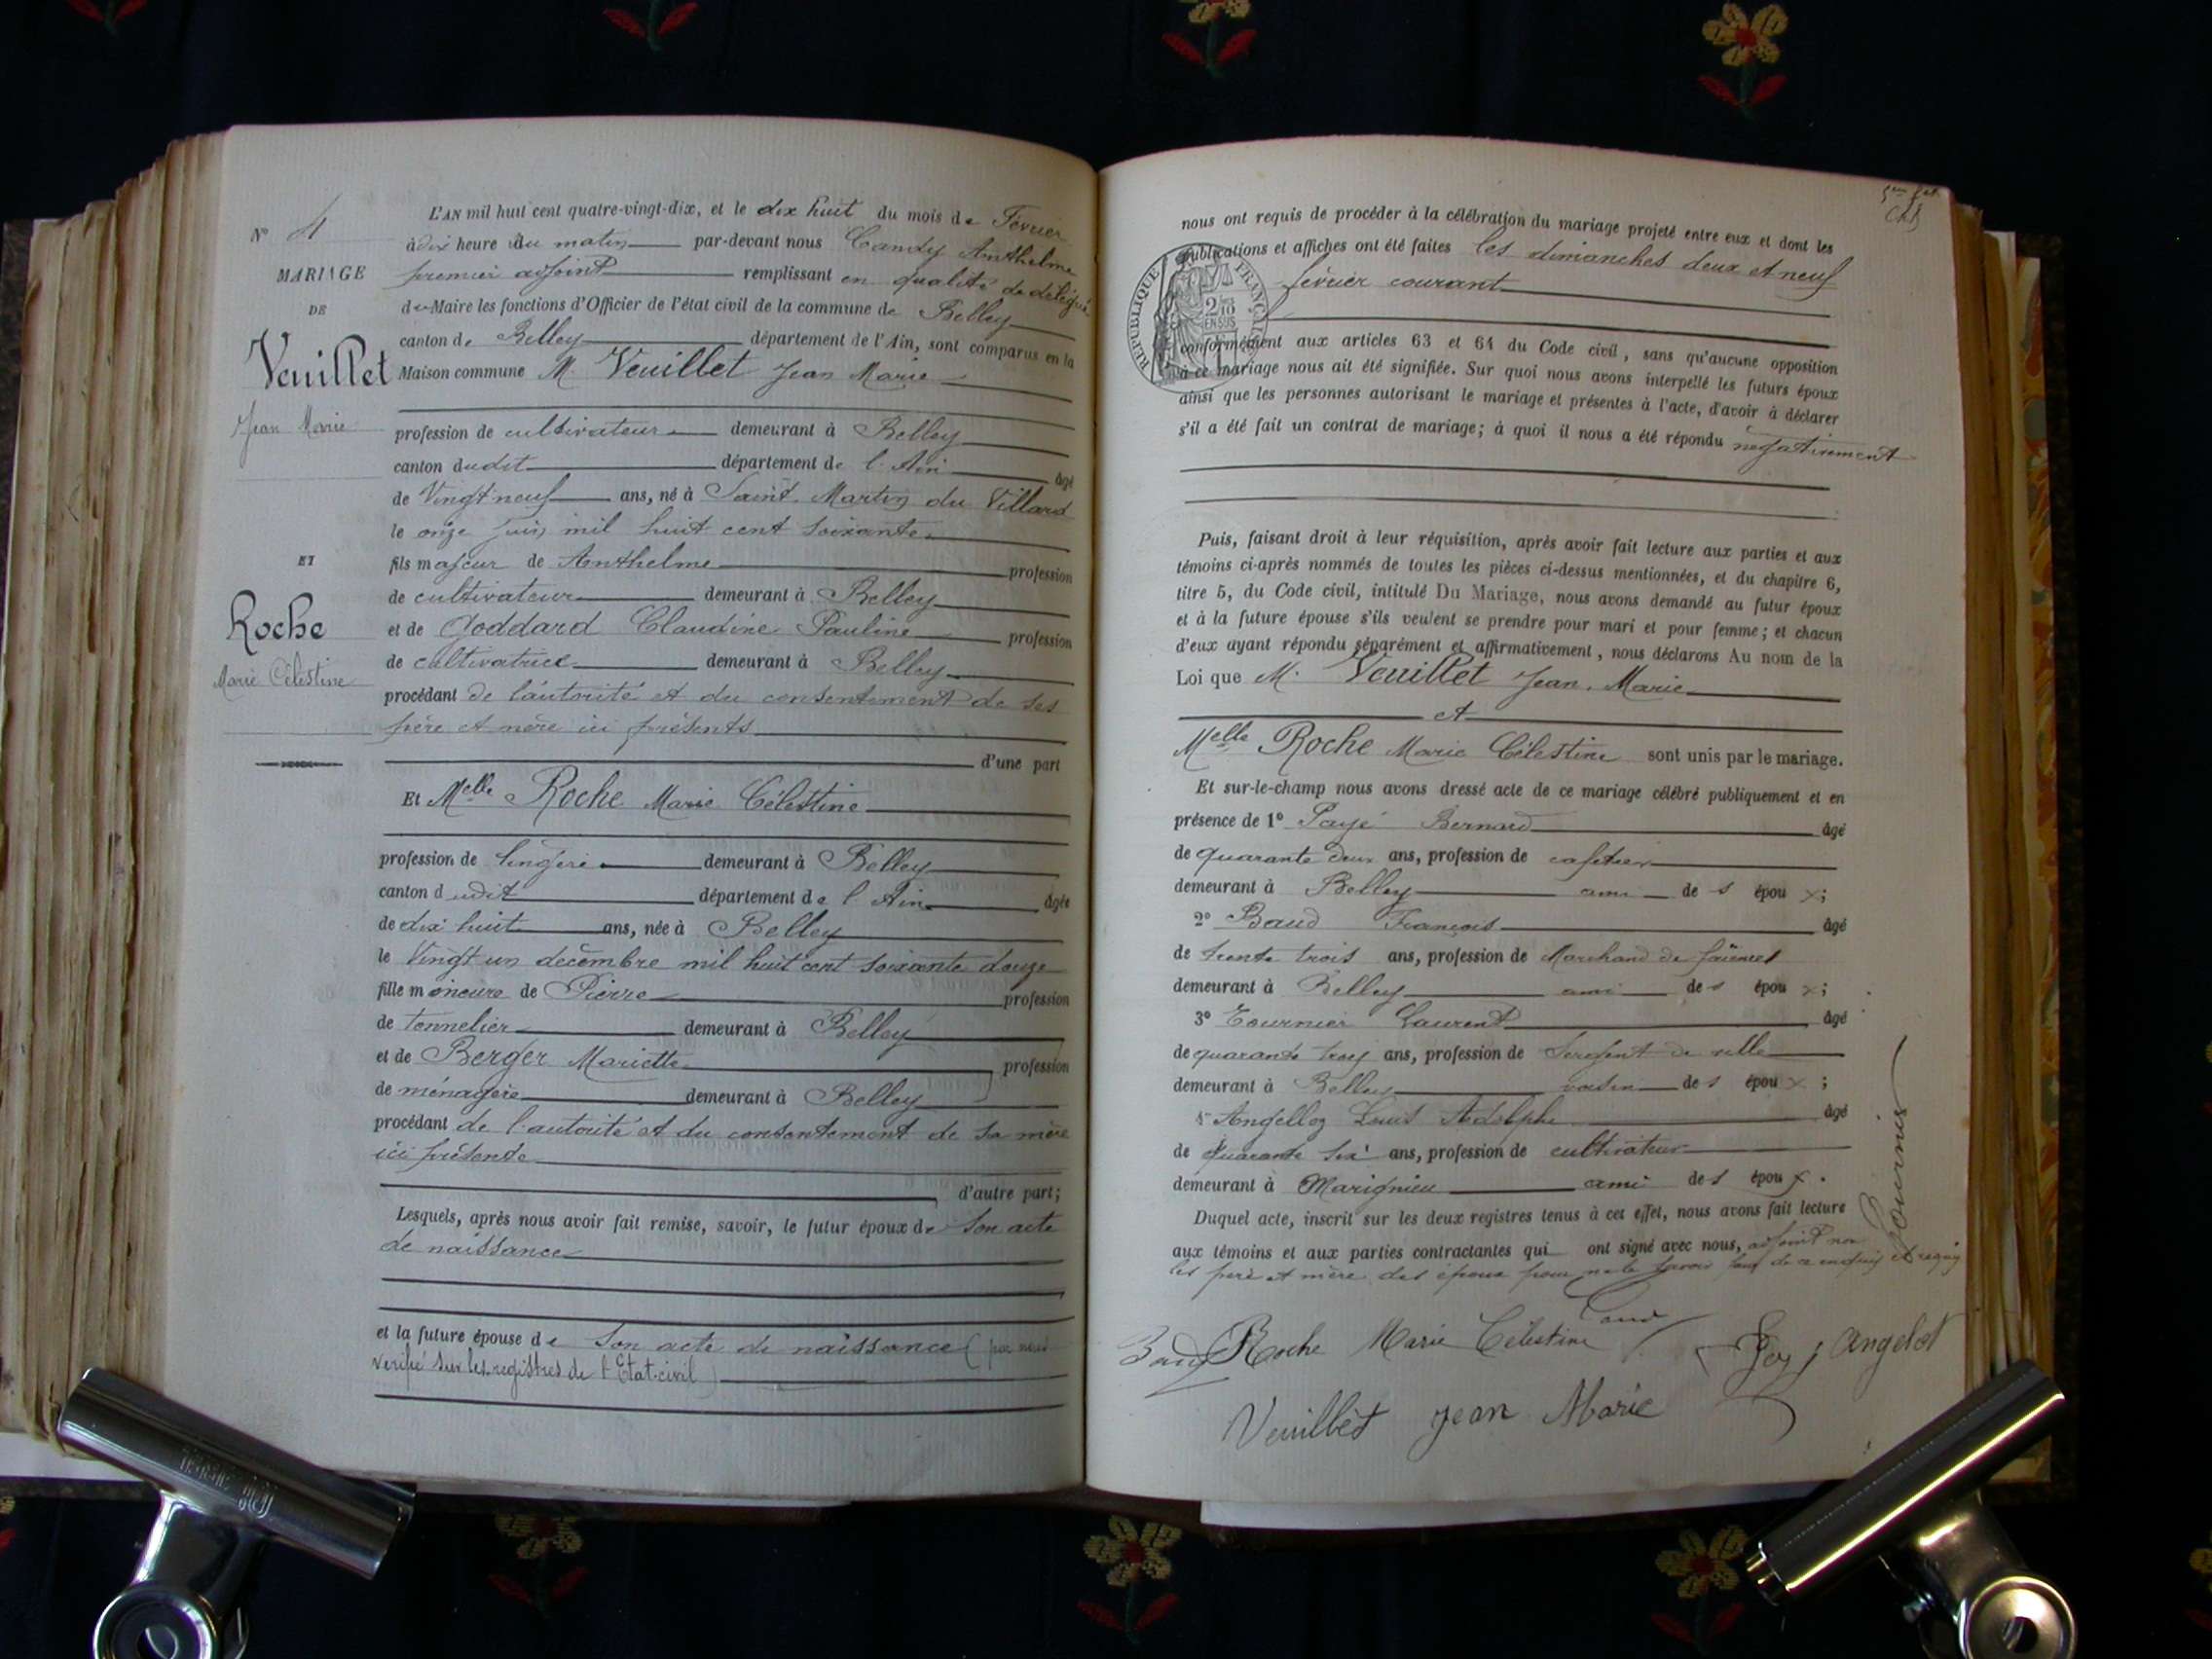 N° 4
MARIAGE
DE
Veuillet
Jean Marie
ET
Roche
Marie Célestine
L'AN mil huit cent quatre-vingt-dix, et le dix huit du mois de Février
à dix heure du matin par-devant nous Candy Anthelme
premier adjoint remplissant en qualité de délégué
du Maire les fonctions d'Officier de l'état civil de la commune de Belley
canton de Belley département de l'Ain, sont comparus en la
Maison commune M. Veuillet Jean Marie
profession de cultivateur demeurant à Belley
canton dudit département de l'Ain âgé
de Vingt neuf ans, né à Saint Martin du Villard
le onze juin mil huit cent soixante
fils majeur de Anthelme profession
de cultivateur demeurant à Belley
et de Goddard Claudine Pauline profession
de cultivatrice demeurant à Belley
procédant de l'autorité et du consentement de ses
père et mère ici présents
d'une part
Et Melle Roche Marie Célestine
profession de lingère demeurant à Belley
canton dudit département de l'Ain âgée
de dix huit ans, née à Belley
le Vingt un décembre mil huit cent soixante douze
fille mineure de Pierre profession
de tonnelier demeurant à Belley
et de Berger Mariette profession
de ménagère demeurant à Belley
procédant de l'autorité et du consentement de sa mère
ici présente
d'autre part;
Lesquels, après nous avoir fait remise, savoir, le futur époux de son acte
de naissance
et la future épouse de son acte de naissance (par nous
vérifié sur les registres de l'Etat-civil)
nous ont requis de procéder à la célébration du mariage projeté entre eux et dont les
publications et affiches ont été faites les dimanches deux et neuf
février courant
RÉPUBLIQUE FRANÇAISE
conformément aux articles 63 et 64 du Code civil, sans qu'aucune opposition
à ce mariage nous ait été signifiée. Sur quoi nous avons interpellé les futurs époux
ainsi que les personnes autorisant le mariage et présentes à l'acte, d'avoir à déclarer
s'il a été fait un contrat de mariage; à quoi il nous a été répondu négativement
Puis, faisant droit à leur réquisition, après avoir fait lecture aux parties et aux
témoins ci-après nommés de toutes les pièces ci-dessus mentionnées, et du chapitre 6,
titre 5, du Code civil, intitulé Du Mariage, nous avons demandé au futur époux
et à la future épouse s'ils veulent se prendre pour mari et pour femme; et chacun
d'eux ayant répondu séparément et affirmativement, nous déclarons Au nom de la
Loi que M. Veuillet Jean Marie
et
Melle Roche Marie Célestine sont unis par le mariage.
Et sur-le-champ nous avons dressé acte de ce mariage célébré publiquement et en
présence de 1° Bernard âgé
de quarante deux ans, profession de cafetier
demeurant à Belley ami de s époux;
2° Baud François âgé
de trente trois ans, profession de Marchand de faïences
demeurant à Belley ami de s époux;
3° Tournier Laurent âgé
de quarante trois ans, profession de sergent de ville
demeurant à Belley voisin de s époux;
4° Angelloz Louis Adolphe âgé
de quarante six ans, profession de cultivateur
demeurant à Marignieu ami de s époux.
Duquel acte, inscrit sur les deux registres tenus à cet effet, nous avons fait lecture
aux témoins et aux parties contractantes qui ont signé avec nous, adjoint non
les père et mère des époux pour ne le savoir de ce enquis et requis
Tournier
Baud Roche Marie Célestine Angelot
Veuillet Jean Marie